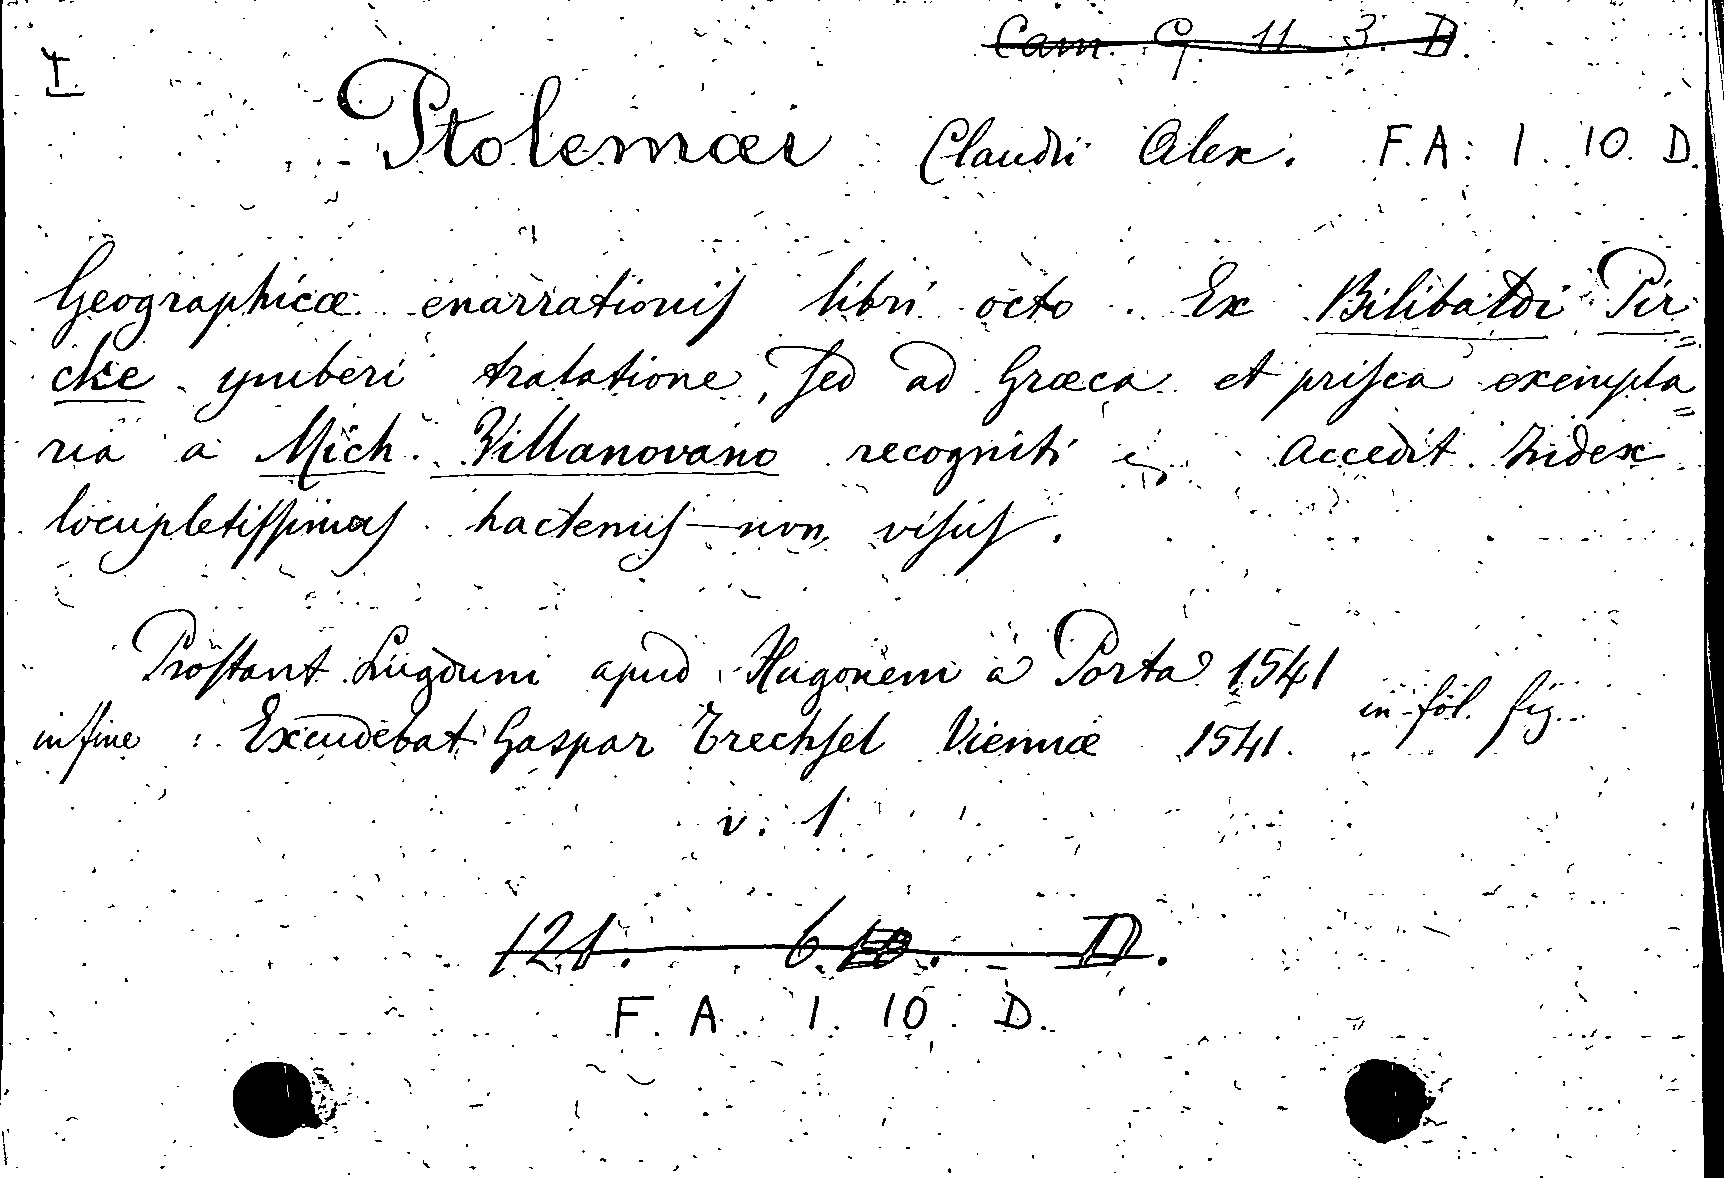 Cam. G. 11. 3. D.
I.
Ptolemæi Claudii Alex. F. A. 1. 10. D.
Geographicæ enarrationis libri octo. Ex Bilibaldi Pir=
cke ymberi tralatione, sed ad Græca et prisca exempla=
ria a Mich. Villanovano recogniti Accedit Index
locupletissimus hactenus non visus.
Prostant Lugduni apud Hugonem a Porta 1541
in fol. fig.
in fine : Excudebat Gaspar Trechsel Viennæ 1541.
v. 1
121. 6. 10. D.
F. A. 1. 10. D.